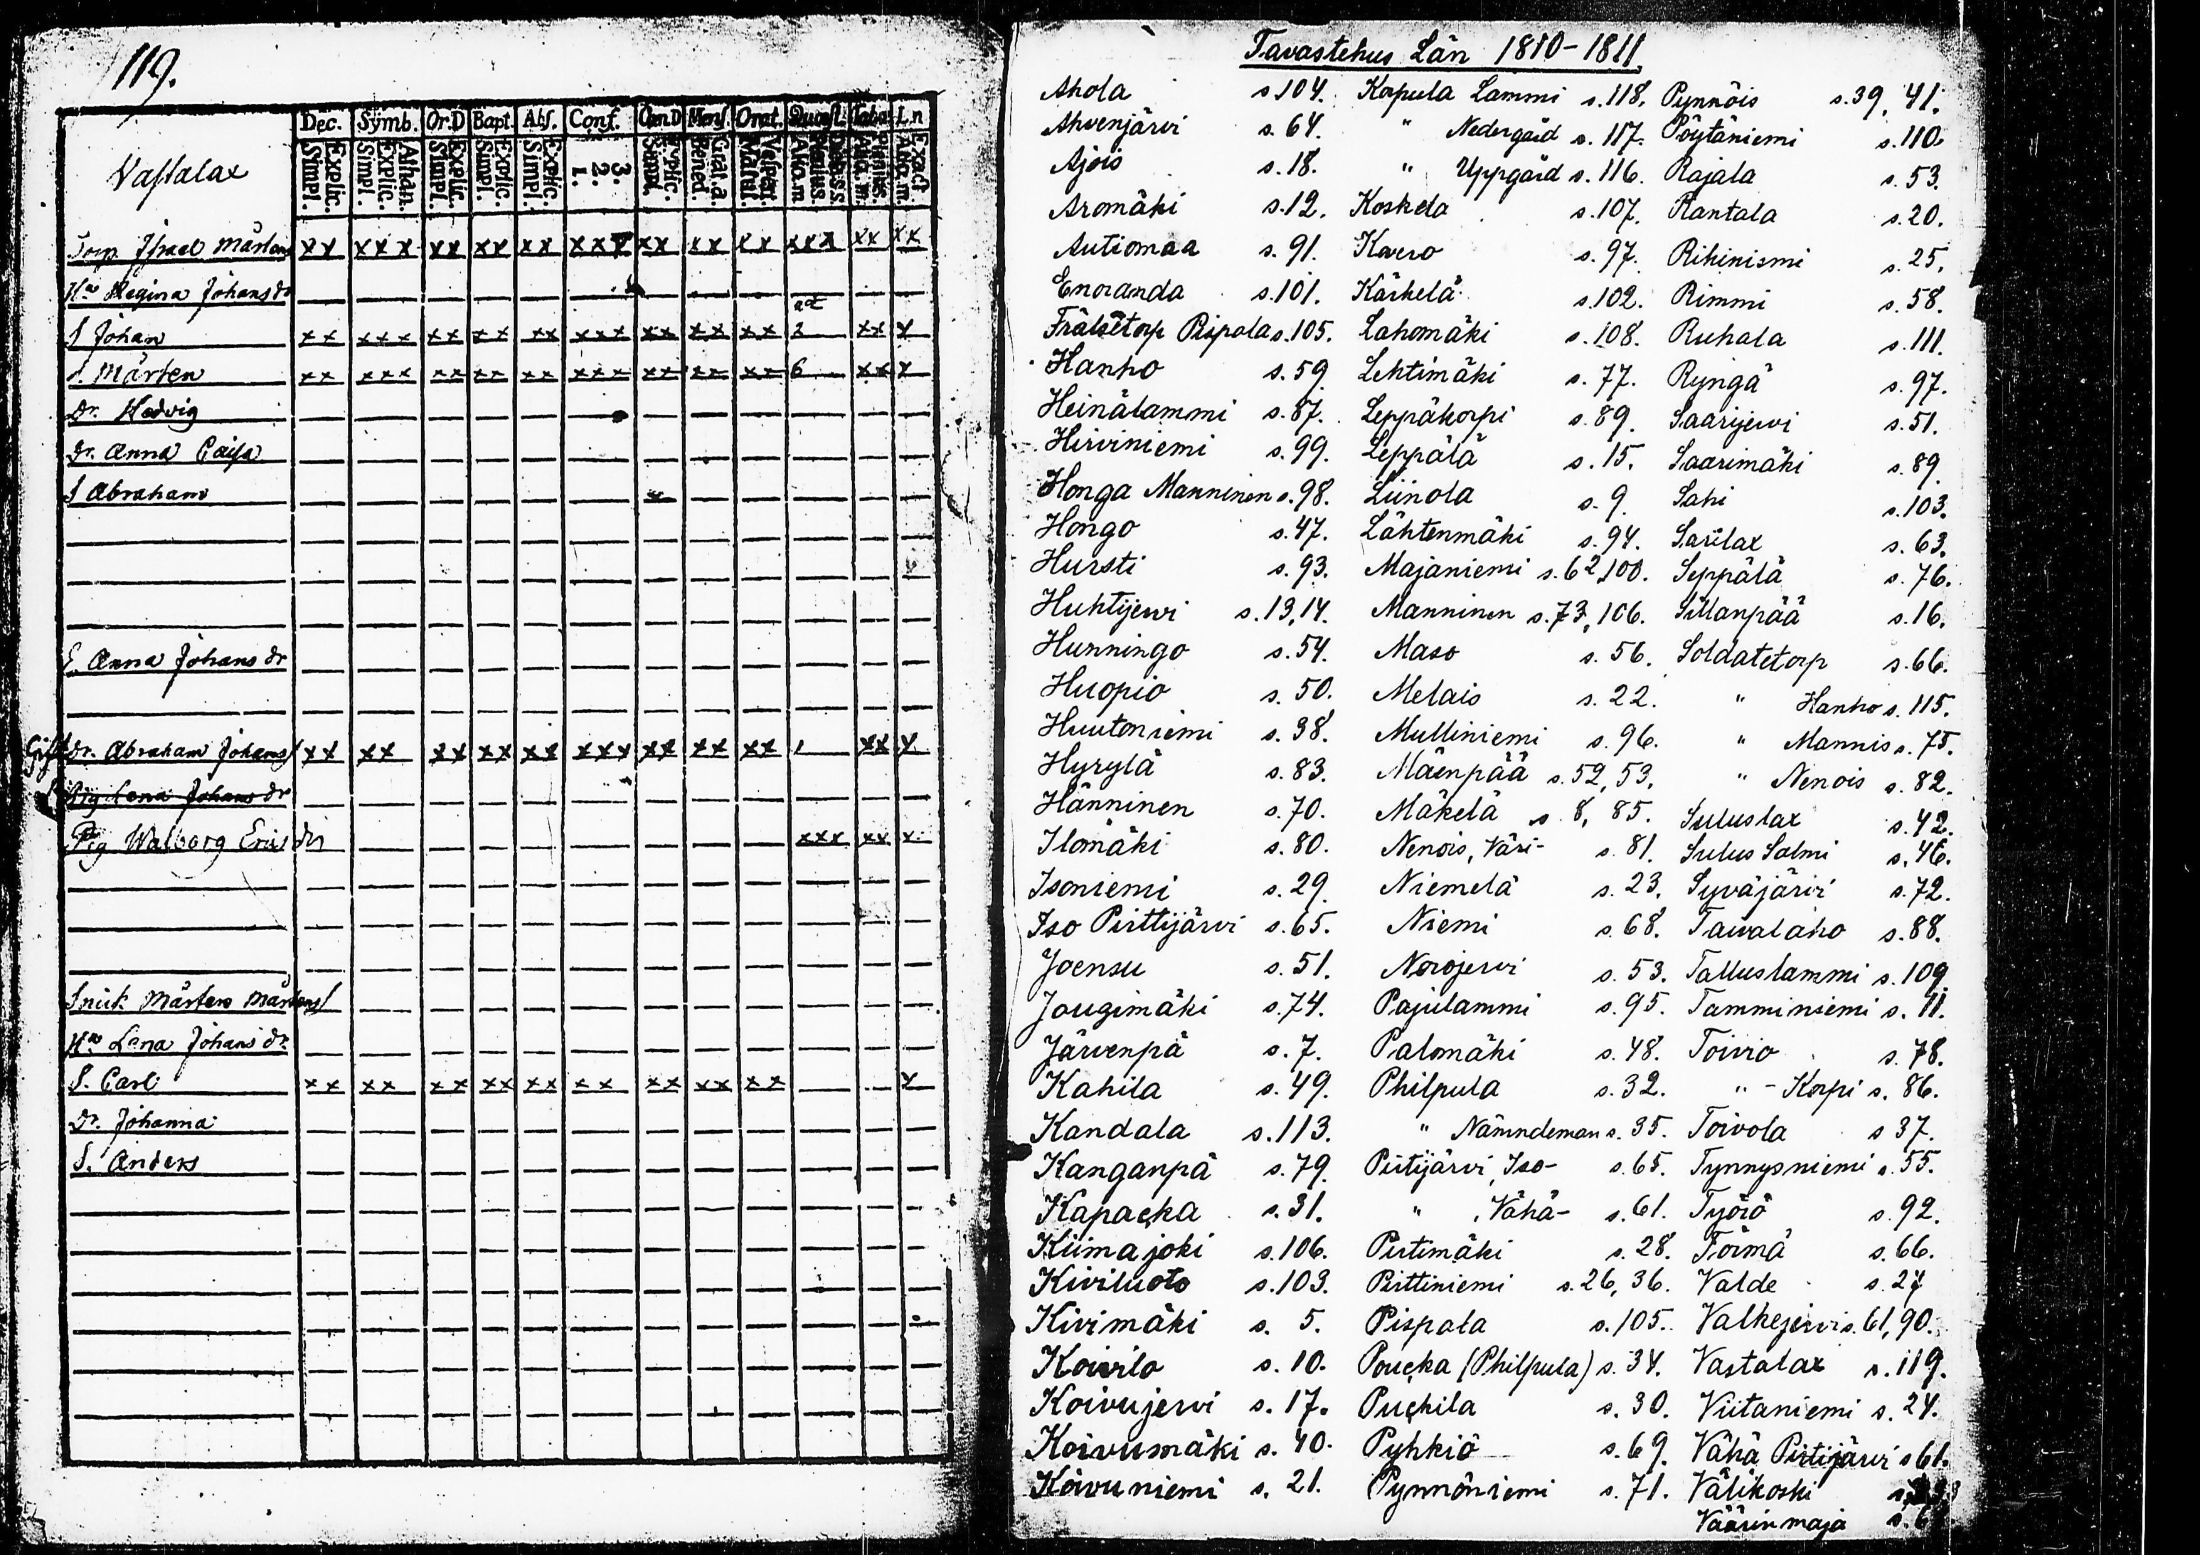 119.
Dec. Symb. Or.D Bapt. Abs. Conf. Can.D Mens. Orat. Quæst. Taba L.n
Explic. Simpl. Athan. Explic. Simpl. Explic. Simpl. Explic. Simpl. Explic. Simpl. 3. 2. 1. Explic. Simpl. Grat.a Bened. Vesper. Matut.
Vastalax
Torp Israel Mårtens xx xxx xx xx xx xx xx xx xxx xx xx
Hu Regina Johans dr
S Johan xx xxx xx xx xx xxx xx xx xx 2 xx x
S. Mårten xx xxx xx xx xx xxx xx xx xx 6 xx x
Dr. Hedvig
Dr. Anna Caisa
S Abraham
E. Anna Johans dr
Gift Dr. Abraham Johans xx xx xx xx xx xxx xx xx xx 1 xx x
Pig Lena Johans dr
Pig Walborg Erics dr xxx xx x
Snick Mårten Mårtens
Hu Lena Johans dr.
S. Carl xx xx xx xx xx xx xx xx xx x
Dr. Johanna
S. Anders
Tavastehus Län 1810-1811.
Ahola s.104.
Ahvenjärvi s.64.
Ajois s.18.
Aromäki s.12.
Autiomaa s.91.
Enoranda s.101.
Frälsetorp Pispala s.105.
Hanho s.59.
Heinälammi s.87.
Hirviniemi s.99.
Honga Manninen s.98.
Hongo s.47.
Hursti s.93.
Huhtijervi s.13,14.
Hunningo s.54.
Huopio s.50.
Huutoniemi s.38.
Hyrylä s.83.
Hänninen s.70.
Ilomäki s.80.
Isoniemi s.29.
Iso Pirttijärvi s.65.
Joensu s.51.
Jougimäki s.74.
Järvenpä s.7.
Kahila s.49.
Kandala s.113.
Kanganpä s.79.
Kapacka s.31.
Kiimajoki s.106.
Kiviluoto s.103.
Kivimäki s. 5.
Koivilo s.10.
Koivujervi s.17.
Koivumäki s.40.
Koivuniemi s.21.
Korpula Lammi s.118.
" Nedergård s.117.
" Uppgård s.116.
Koskela s.107.
Kovero s.97.
Kärkelä s.102.
Lahomäki s.108.
Lehtimäki s.77.
Leppäkorpi s.89.
Leppälä s.15.
Liinola s.9.
Lähtenmäki s.94.
Majaniemi s.62,100.
Manninen s.73,106.
Maso s.56.
Melais s.22.
Mulliniemi s.96.
Mäenpää s.52,53.
Mäkelä s.8, 85.
Nenois, Väri- s.81.
Niemelä s.23.
Niemi s.68.
Norojervi s.53.
Pajulammi s.95.
Palomäki s.48.
Philpula s.32.
" Nämndeman s.35.
Pirtijärvi, Iso- s.65.
" , Vähä- s.61.
Pirtimäki s.28.
Pirttiniemi s.26,36.
Pispala s.105.
Poucka (Philpula) s.34.
Puckila s.30.
Pyhkiö s.69.
Pynnöniemi s.71.
Pynnöis s.39, 41.
Pöytäniemi s.110.
Rajala s.53.
Rantala s.20.
Rihiniemi s.25.
Rimmi s.58.
Ruhala s.111.
Ryngä s.97.
Saarijervi s.51.
Saarimäki s.89.
Sahi s.103.
Sarilax s.63.
Seppälä s.76.
Sillanpää s.16.
Soldatetorp s.66.
" Hanho s.115.
" Mannis s.75.
" Nenois s.82.
Suluslax s.42.
Sulus Salmi s.46.
Syväjärvi s.72.
Taivalaho s.88.
Talluslammi s.109.
Tamminiemi s.11.
Toivio s.78.
" - Korpi s.86.
Toivola s 37.
Tynnysniemi s.55.
Työrö s.92.
Törmä s.66.
Valde s.27
Valkejervi s.61,90.
Vastalax s.119.
Viitaniemi s.24.
Vähä Pirtijärvi s 61.
Välikoski
Väärinmaja